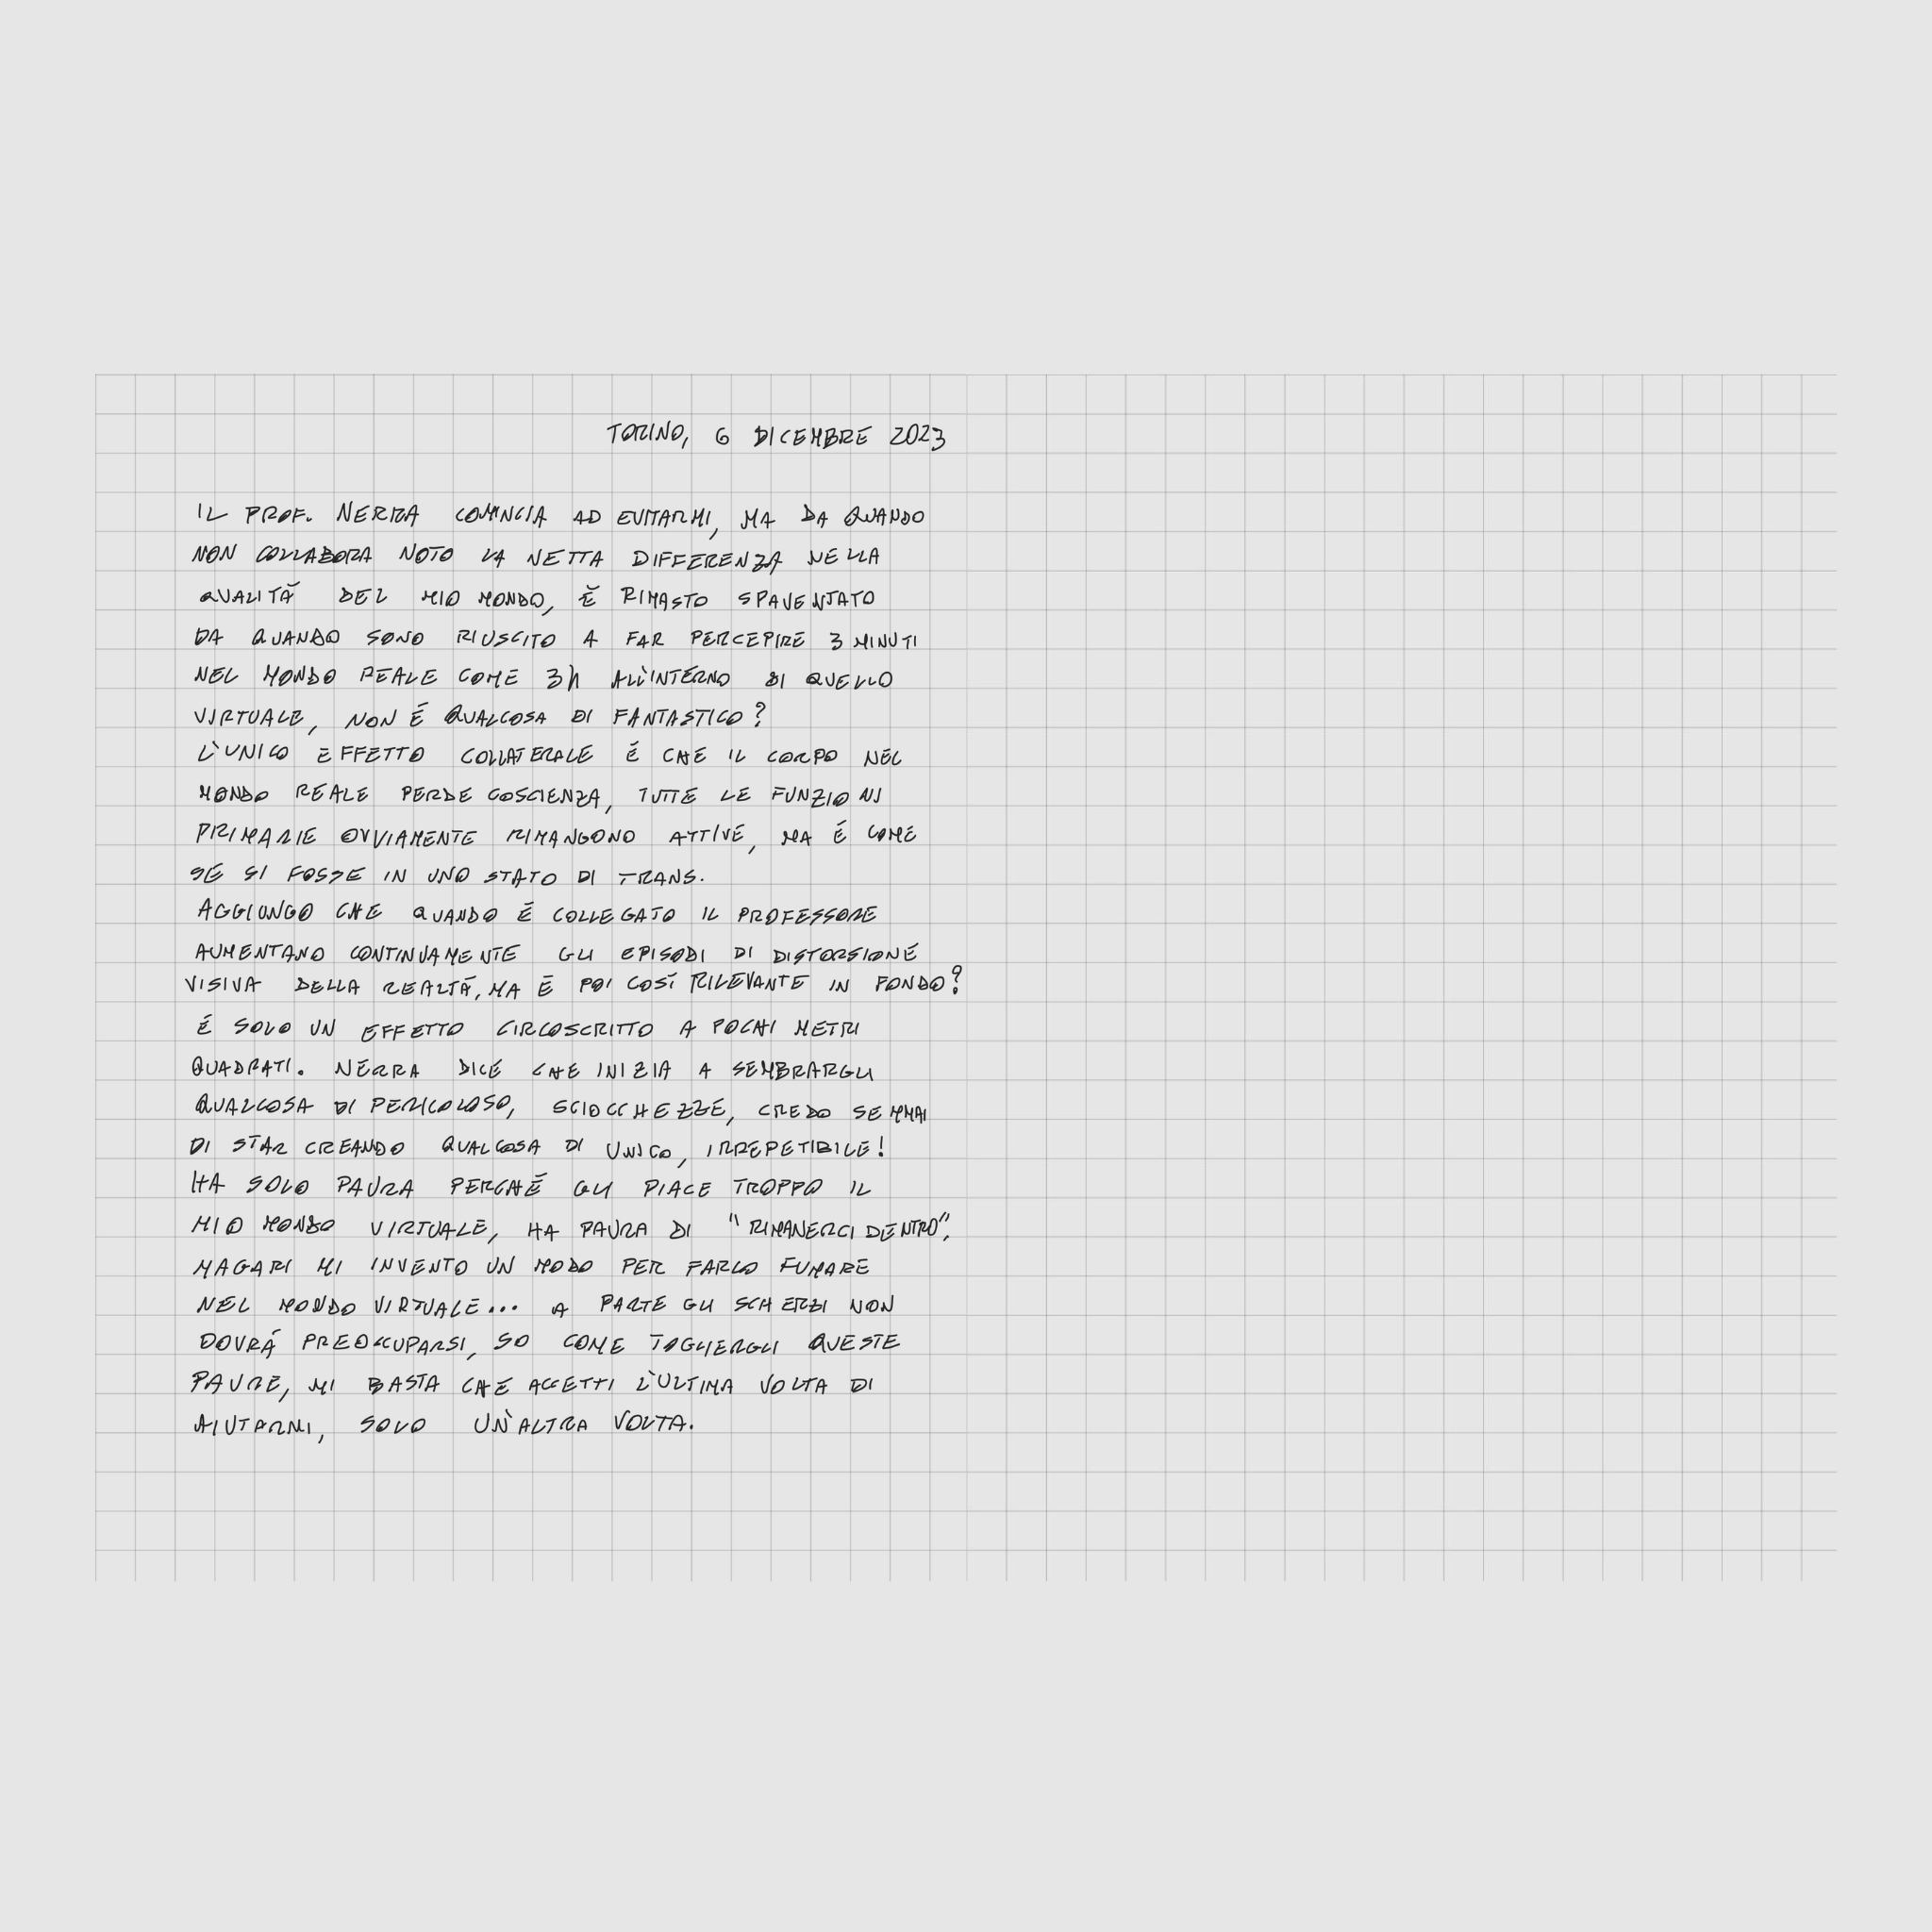 TORINO, 6 DICEMBRE 2023
IL PROF. NERRA COMINCIA AD EVITARMI, MA DA QUANDO
NON COLLABORA NOTO LA NETTA DIFFERENZA NELLA
QUALITÀ DEL MIO MONDO, È RIMASTO SPAVENTATO
DA QUANDO SONO RIUSCITO A FAR PERCEPIRE 3 MINUTI
NEL MONDO REALE COME 3h ALL'INTERNO DI QUELLO
VIRTUALE, NON É QUALCOSA DI FANTASTICO?
L'UNICO EFFETTO COLLATERALE É CHE IL CORPO NEL
MONDO REALE PERDE COSCIENZA, TUTTE LE FUNZIONI
PRIMARIE OVVIAMENTE RIMANGONO ATTIVE, MA É COME
SE SI FOSSE IN UNO STATO DI TRANS.
AGGIUNGO CHE QUANDO É COLLEGATO IL PROFESSORE
AUMENTANO CONTINUAMENTE GLI EPISODI DI DISTORSIONE
VISIVA DELLA REALTÁ, MA È POI COSÌ RILEVANTE IN FONDO?
É SOLO UN EFFETTO CIRCOSCRITTO A POCHI METRI
QUADRATI. NERRA DICE CHE INIZIA A SEMBRARGLI
QUALCOSA DI PERICOLOSO, SCIOCCHEZZE, CREDO SEMMAI
DI STAR CREANDO QUALCOSA DI UNICO, IRREPETIBILE!
HA SOLO PAURA PERCHÉ GLI PIACE TROPPO IL
MIO MONDO VIRTUALE, HA PAURA DI "RIMANERCI DENTRO",
MAGARI MI INVENTO UN MODO PER FARLO FUMARE
NEL MONDO VIRTUALE... A PARTE GLI SCHERZI NON
DOVRÁ PREOCCUPARSI, SO COME TOGLIERGLI QUESTE
PAURE, MI BASTA CHE ACCETTI L'ULTIMA VOLTA DI
AIUTARMI, SOLO UN'ALTRA VOLTA.